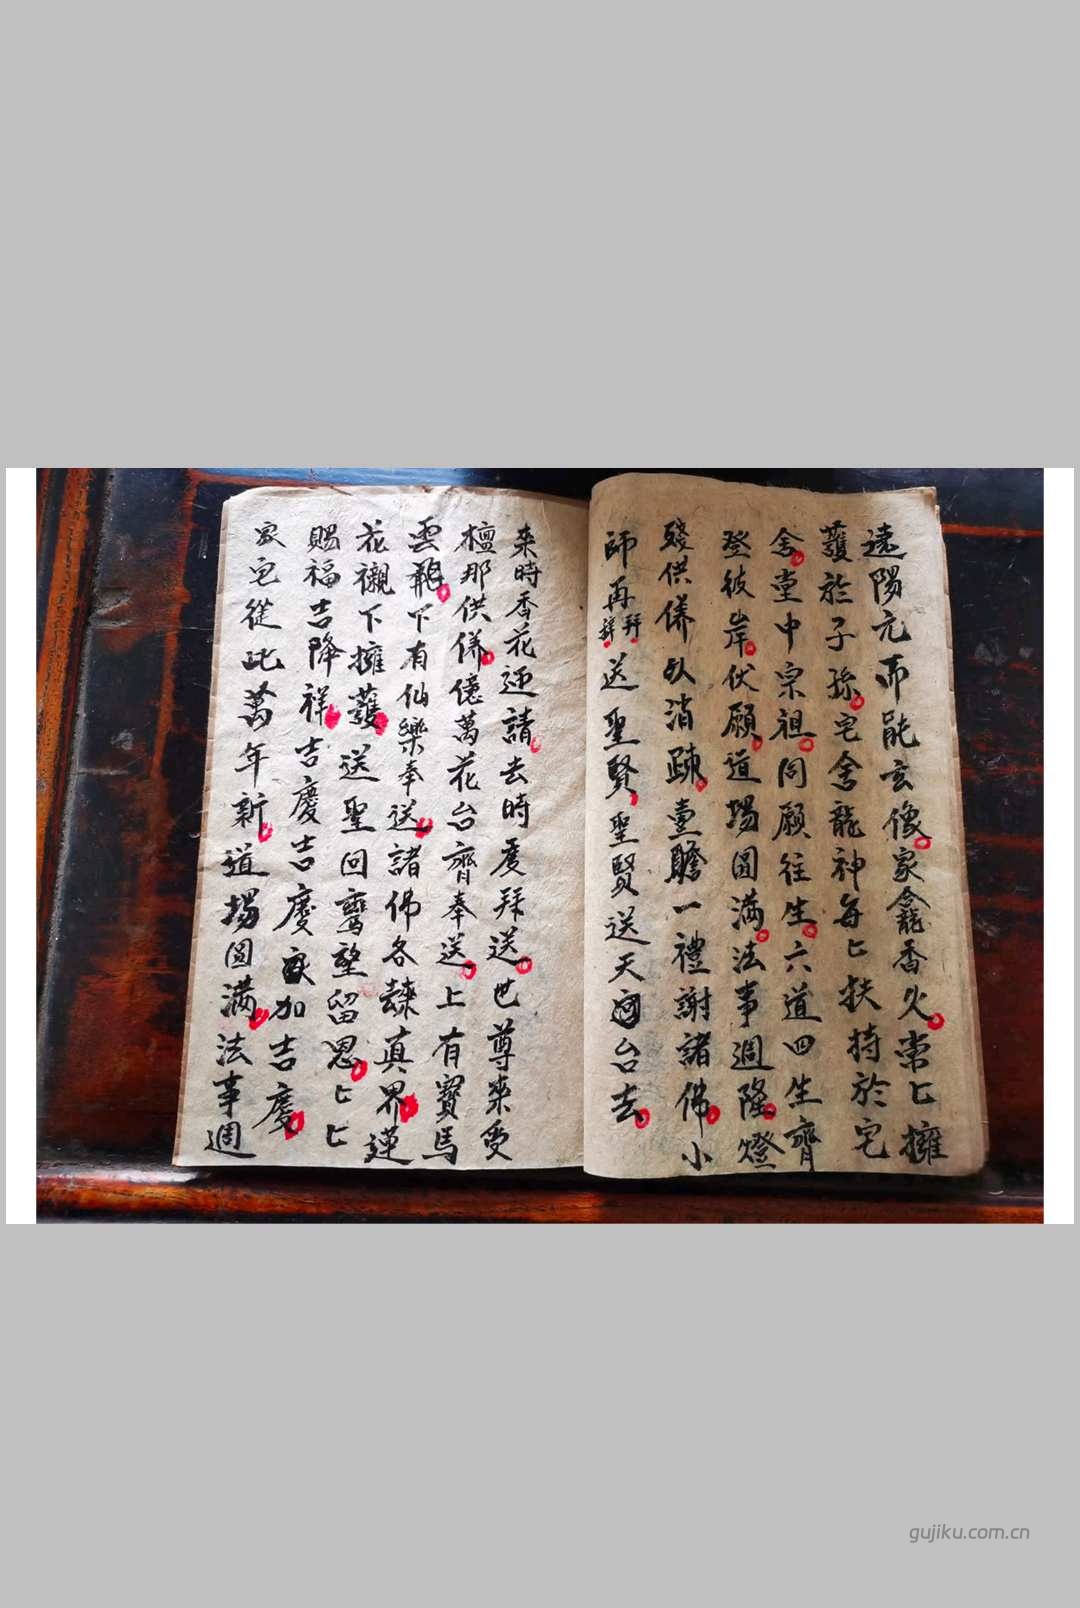 遠陽元而能玄像家龕香火常匕擁
護於子孫宅舍龍神每匕扶持於宅
舍堂中宗祖同願往生六道四生齊
登彼岸伏願道場圓满法事週隆燈
殘供儀臥消踈臺瞻一禮謝諸佛小
師再拜辞送聖賢聖賢送天台去
来時香花迎請去時虔拜送世尊來受
檀那供儀億萬花台齊奉送上有寶馬
雲下有仙樂奉送諸佛各歸真界蓮
花襯下擁護送聖回鸞望留恩匕匕
賜福吉降祥吉慶吉慶加吉慶
家宅從此萬年新道場圓满法事週
gujiku.com.cn